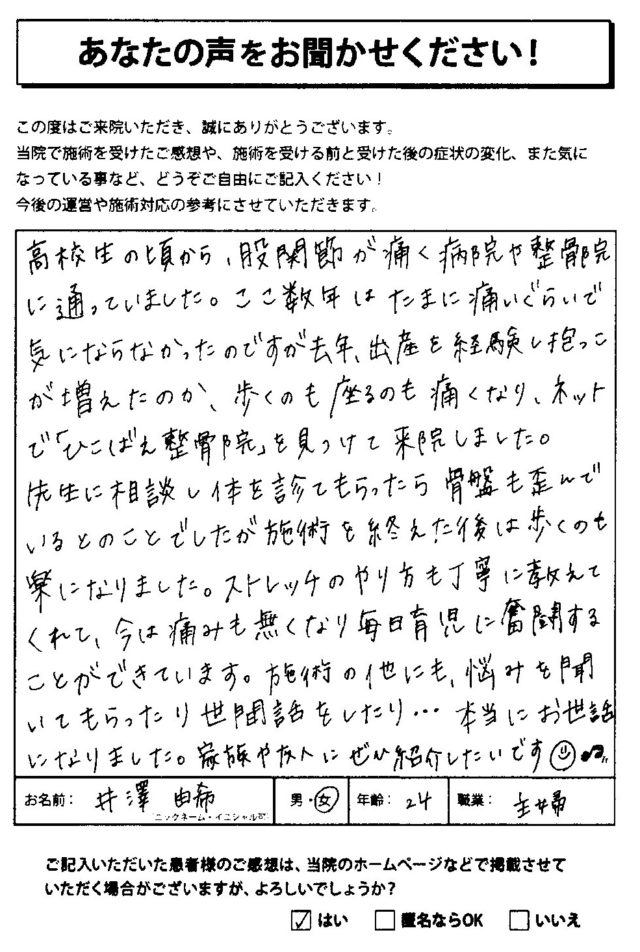 あなたの声をお聞かせください!
この度はご来院いただき、誠にありがとうございます。
当院で施術を受けたご感想や、施術を受ける前と受けた後の症状の変化、また気に
なっている事など、どうぞご自由にご記入ください!
今後の運営や施術対応の参考にさせていただきます。
高校生の頃から、股関節が痛く病院や整骨院
に通っていました。ここ数年はたまに痛いぐらいで
気にならなかったのですが去年、出産を経験し抱っこ
が増えたのか、歩くのも座るのも痛くなり、ネット
で「ひこばえ整骨院」を見つけて来院しました。
先生に相談し体を診てもらったら骨盤も歪んで
いるとのことでしたが施術を終えた後は歩くのも
楽になりました。ストレッチのやり方も丁寧に教えて
くれて、今は痛みも無くなり毎日育児に奮闘する
ことができています。施術の他にも、悩みを聞
いてもらったり世間話をしたり… 本当にお世話
になりました。家族や友人にぜひ紹介したいです
お名前: 井澤 由希 男・女 年齢: 24 職業: 主婦
ニックネーム・イニシャル可
ご記入いただいた患者様のご感想は、当院のホームページなどで掲載させて
いただく場合がございますが、よろしいでしょうか?
☑ はい □ 匿名ならOK □ いいえ